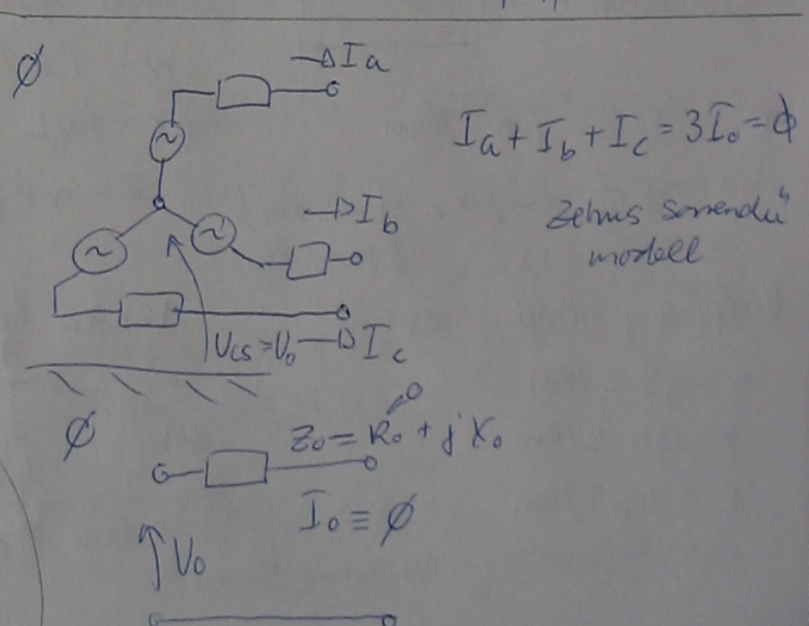 ∅
→Ia
Ia + Ib + Ic = 3I₀ = ∅
→Ib
Zérus sorrendű
modell
Ucs = U₀ → Ic
∅
Z₀ = R₀ + jX₀
0
I₀ ≡ ∅
↑U₀